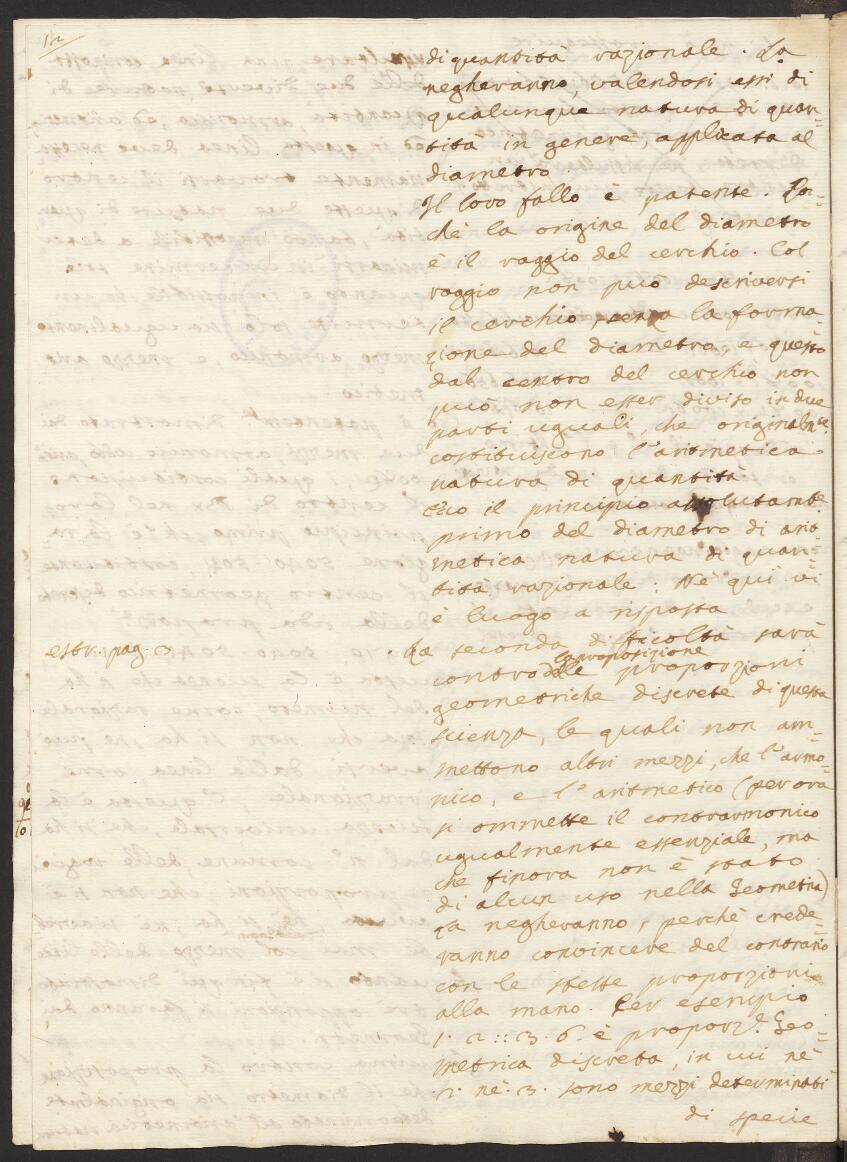 12
di quantità razionale. La
negheranno, valendosi essi di
qualunque natura di quan-
tità in genere, applicata al
diametro.
Il loro fallo è patente. Poi-
chè la origine del diametro
è il raggio del cerchio. Col
raggio non può descriversi
il cerchio senza la forma-
zione del diametro, e questo
dal centro del cerchio non
può non esser diviso in due
parti uguali, che originalmte
costituiscono l'aritmetica
natura di quantità.
Ecco il principio assolutamte
primo del diametro di arit-
metica natura di quan-
tità razionale. Nè qui vi
è luogo a risposta
estr. pag. 3
La seconda difficoltà sarà
la proposizione
contro delle proporzioni
geometriche discrete di questa
scienza, le quali non am-
mettono altri mezzi, che l'armo-
nico, e l'aritmetico (per ora
si ommette il contrarmonico
ugualmente essenziale, ma
che finora non è stato
di alcun uso nella Geometria)
La negheranno, perchè crede-
ranno convincere del contrario
con le stesse proporzioni
alla mano. Per esempio
1. 2 :: 3. 6. è proporze. Geo-
metrica discreta, in cui nè
2. nè 3. sono mezzi determinati
di specie